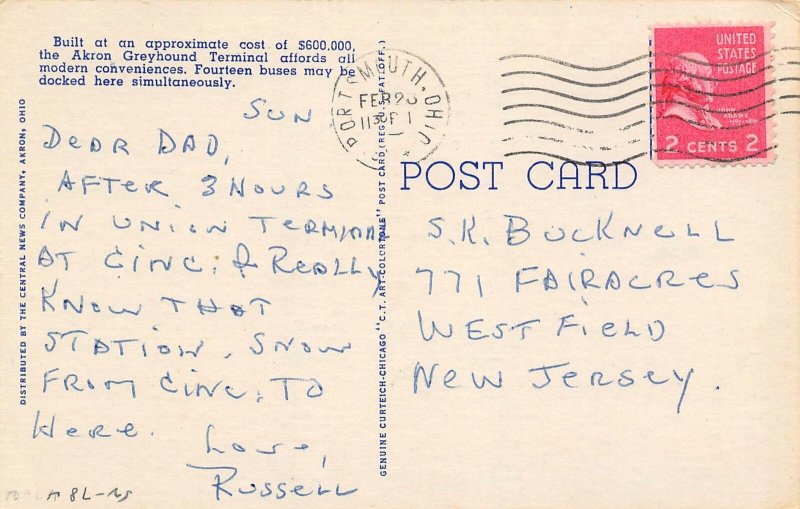 Built at an approximate cost of $600,000,
the Akron Greyhound Terminal affords all
modern conveniences. Fourteen buses may be
docked here simultaneously.
SUN
DEAR DAD,
AFTER 3 HOURS
IN UNION TERMINAL
AT CINC. I REALLY
KNOW THAT
STATION. SNOW
FROM CINC. TO
HERE.
LOVE,
RUSSELL
DISTRIBUTED BY THE CENTRAL NEWS COMPANY, AKRON, OHIO
GENUINE CURTEICH-CHICAGO "C.T. ART-COLORTONE" POST CARD (REG. U.S. PAT. OFF.)
PORTSMOUTH, OHIO
FEB
1130 P
1
UNITED
STATES
POSTAGE
JOHN
ADAMS
2 CENTS 2
POST CARD
S.K. BUCKNELL
771 FAIRACRES
WESTFIELD
NEW JERSEY.
8L-N5